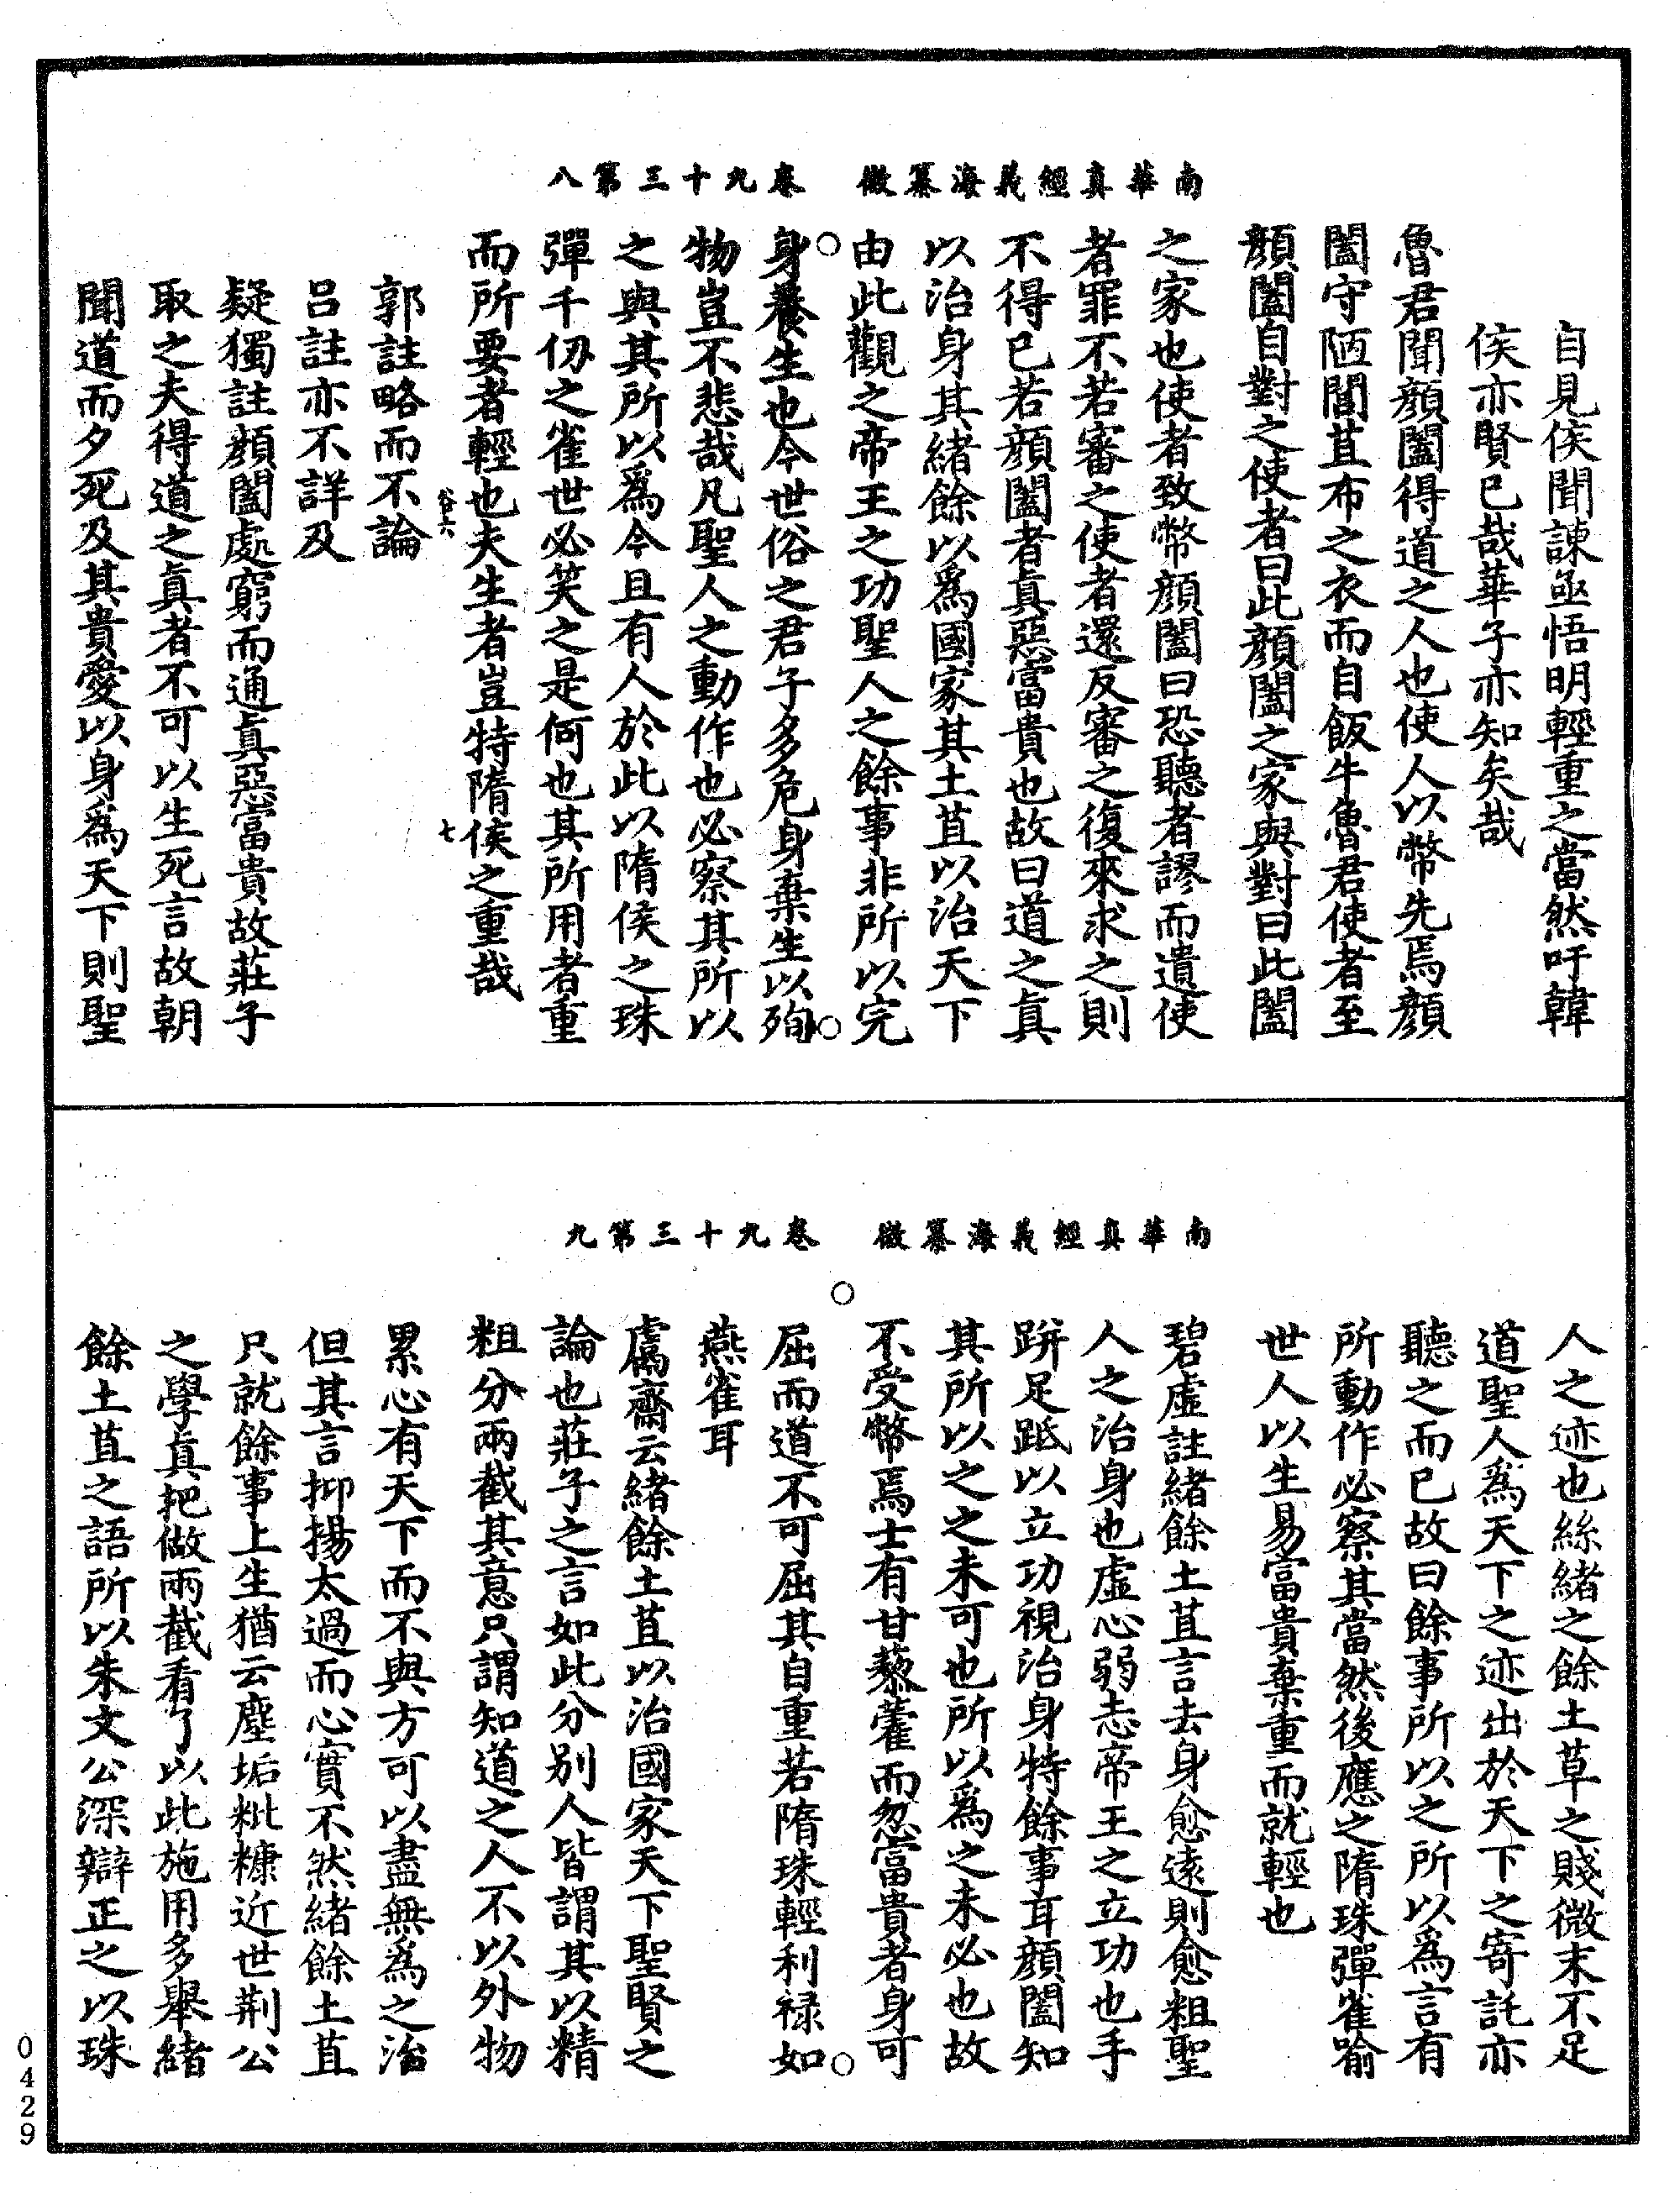 南華真經義海纂微　卷九十三第八
自見侯聞諫亟悟明輕重之當然吁韓
侯亦賢已哉華子亦知矣哉
魯君聞顏闔得道之人也使人以幣先焉顏
闔守陋閭苴布之衣而自飯牛魯君使者至
顏闔自對之使者曰此顏闔之家與對曰此闔
之家也使者致幣顏闔曰恐聽者謬而遺使
者罪不若審之使者還反審之復來求之則
不得已若顏闔者真惡富貴也故曰道之真
以治身其緒餘以為國家其土苴以治天下
由此觀之帝王之功聖人之餘事非所以完
身養生也今世俗之君子多危身棄生以殉
物豈不悲哉凡聖人之動作也必察其所以
之與其所以為今且有人於此以隋侯之珠
彈千仞之雀世必笑之是何也其所用者重
而所要者輕也夫生者豈特隋侯之重哉
郭註略而不論
呂註亦不詳及
疑獨註顏闔處窮而通真惡富貴故莊子
取之夫得道之真者不可以生死言故朝
聞道而夕死及其貴愛以身為天下則聖
南華真經義海纂微　卷九十三第九
人之迹也絲緒之餘土草之賤微末不足
道聖人為天下之迹出於天下之寄託亦
聽之而已故曰餘事所以之所以為言有
所動作必察其當然後應之隋珠彈雀喻
世人以生易富貴棄重而就輕也
碧虛註緒餘土苴言去身愈遠則愈粗聖
人之治身也虛心弱志帝王之立功也手
跰足胝以立功視治身特餘事耳顏闔知
其所以之之未可也所以為之未必也故
不受幣焉士有甘藜藿而忽富貴者身可
屈而道不可屈其自重若隋珠輕利祿如
燕雀耳
鬳齋云緒餘土苴以治國家天下聖賢之
論也莊子之言如此分別人皆謂其以精
粗分兩截其意只謂知道之人不以外物
累心有天下而不與方可以盡無為之治
但其言抑揚太過而心實不然緒餘土苴
只就餘事上生猶云塵垢粃糠近世荆公
之學真把做兩截看了以此施用多舉緒
餘土苴之語所以朱文公深辯正之以珠
0429